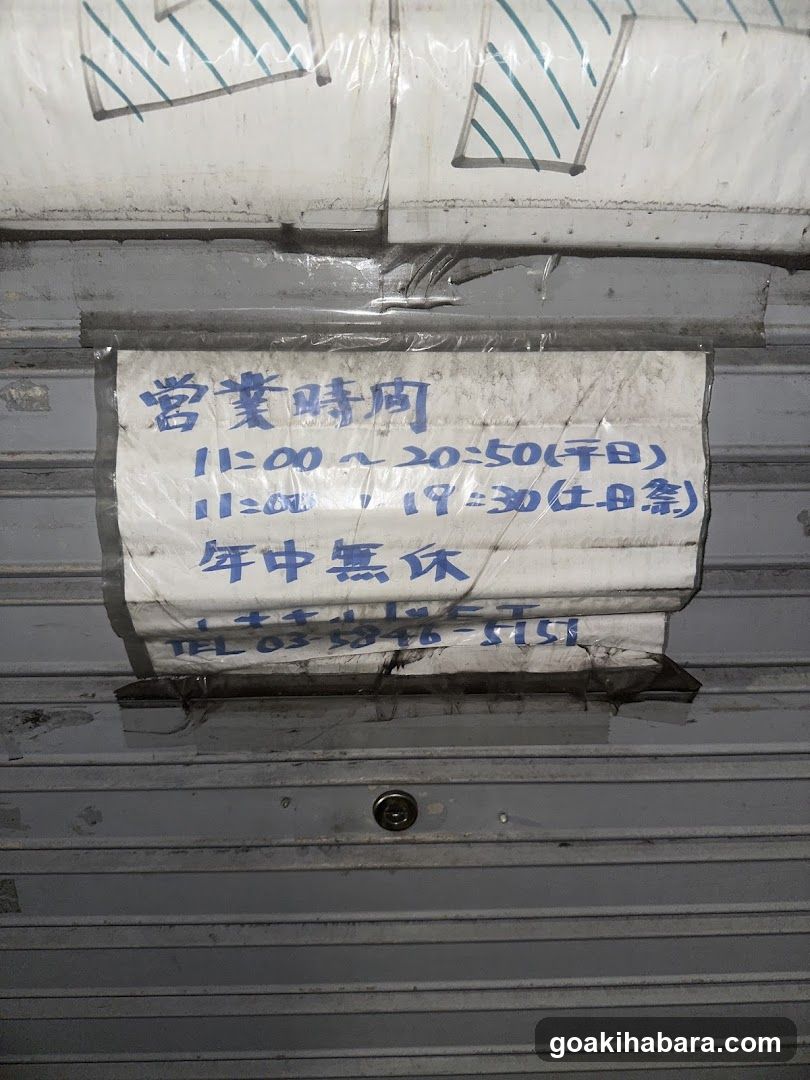 営業時間
11:00 ~ 20:50(平日)
11:00 ~ 19:30(土日祭)
年中無休
TEL 03-5846-5151
goakihabara.com